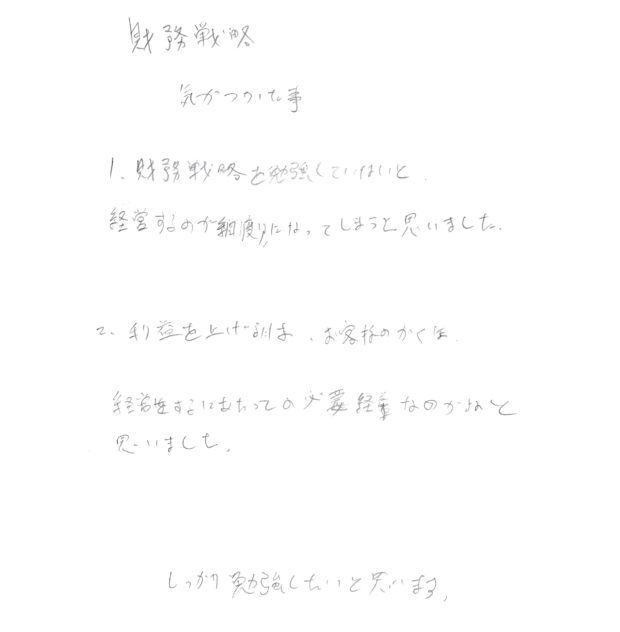 財務戦略
気がついた事
1. 財務戦略を勉強していないと、
経営するのが綱渡りになってしまうと思いました。
2. 利益を上げる、お客様の
経営するにあたっての必要経費なのかなと
思いました。
しっかり勉強したいと思います。